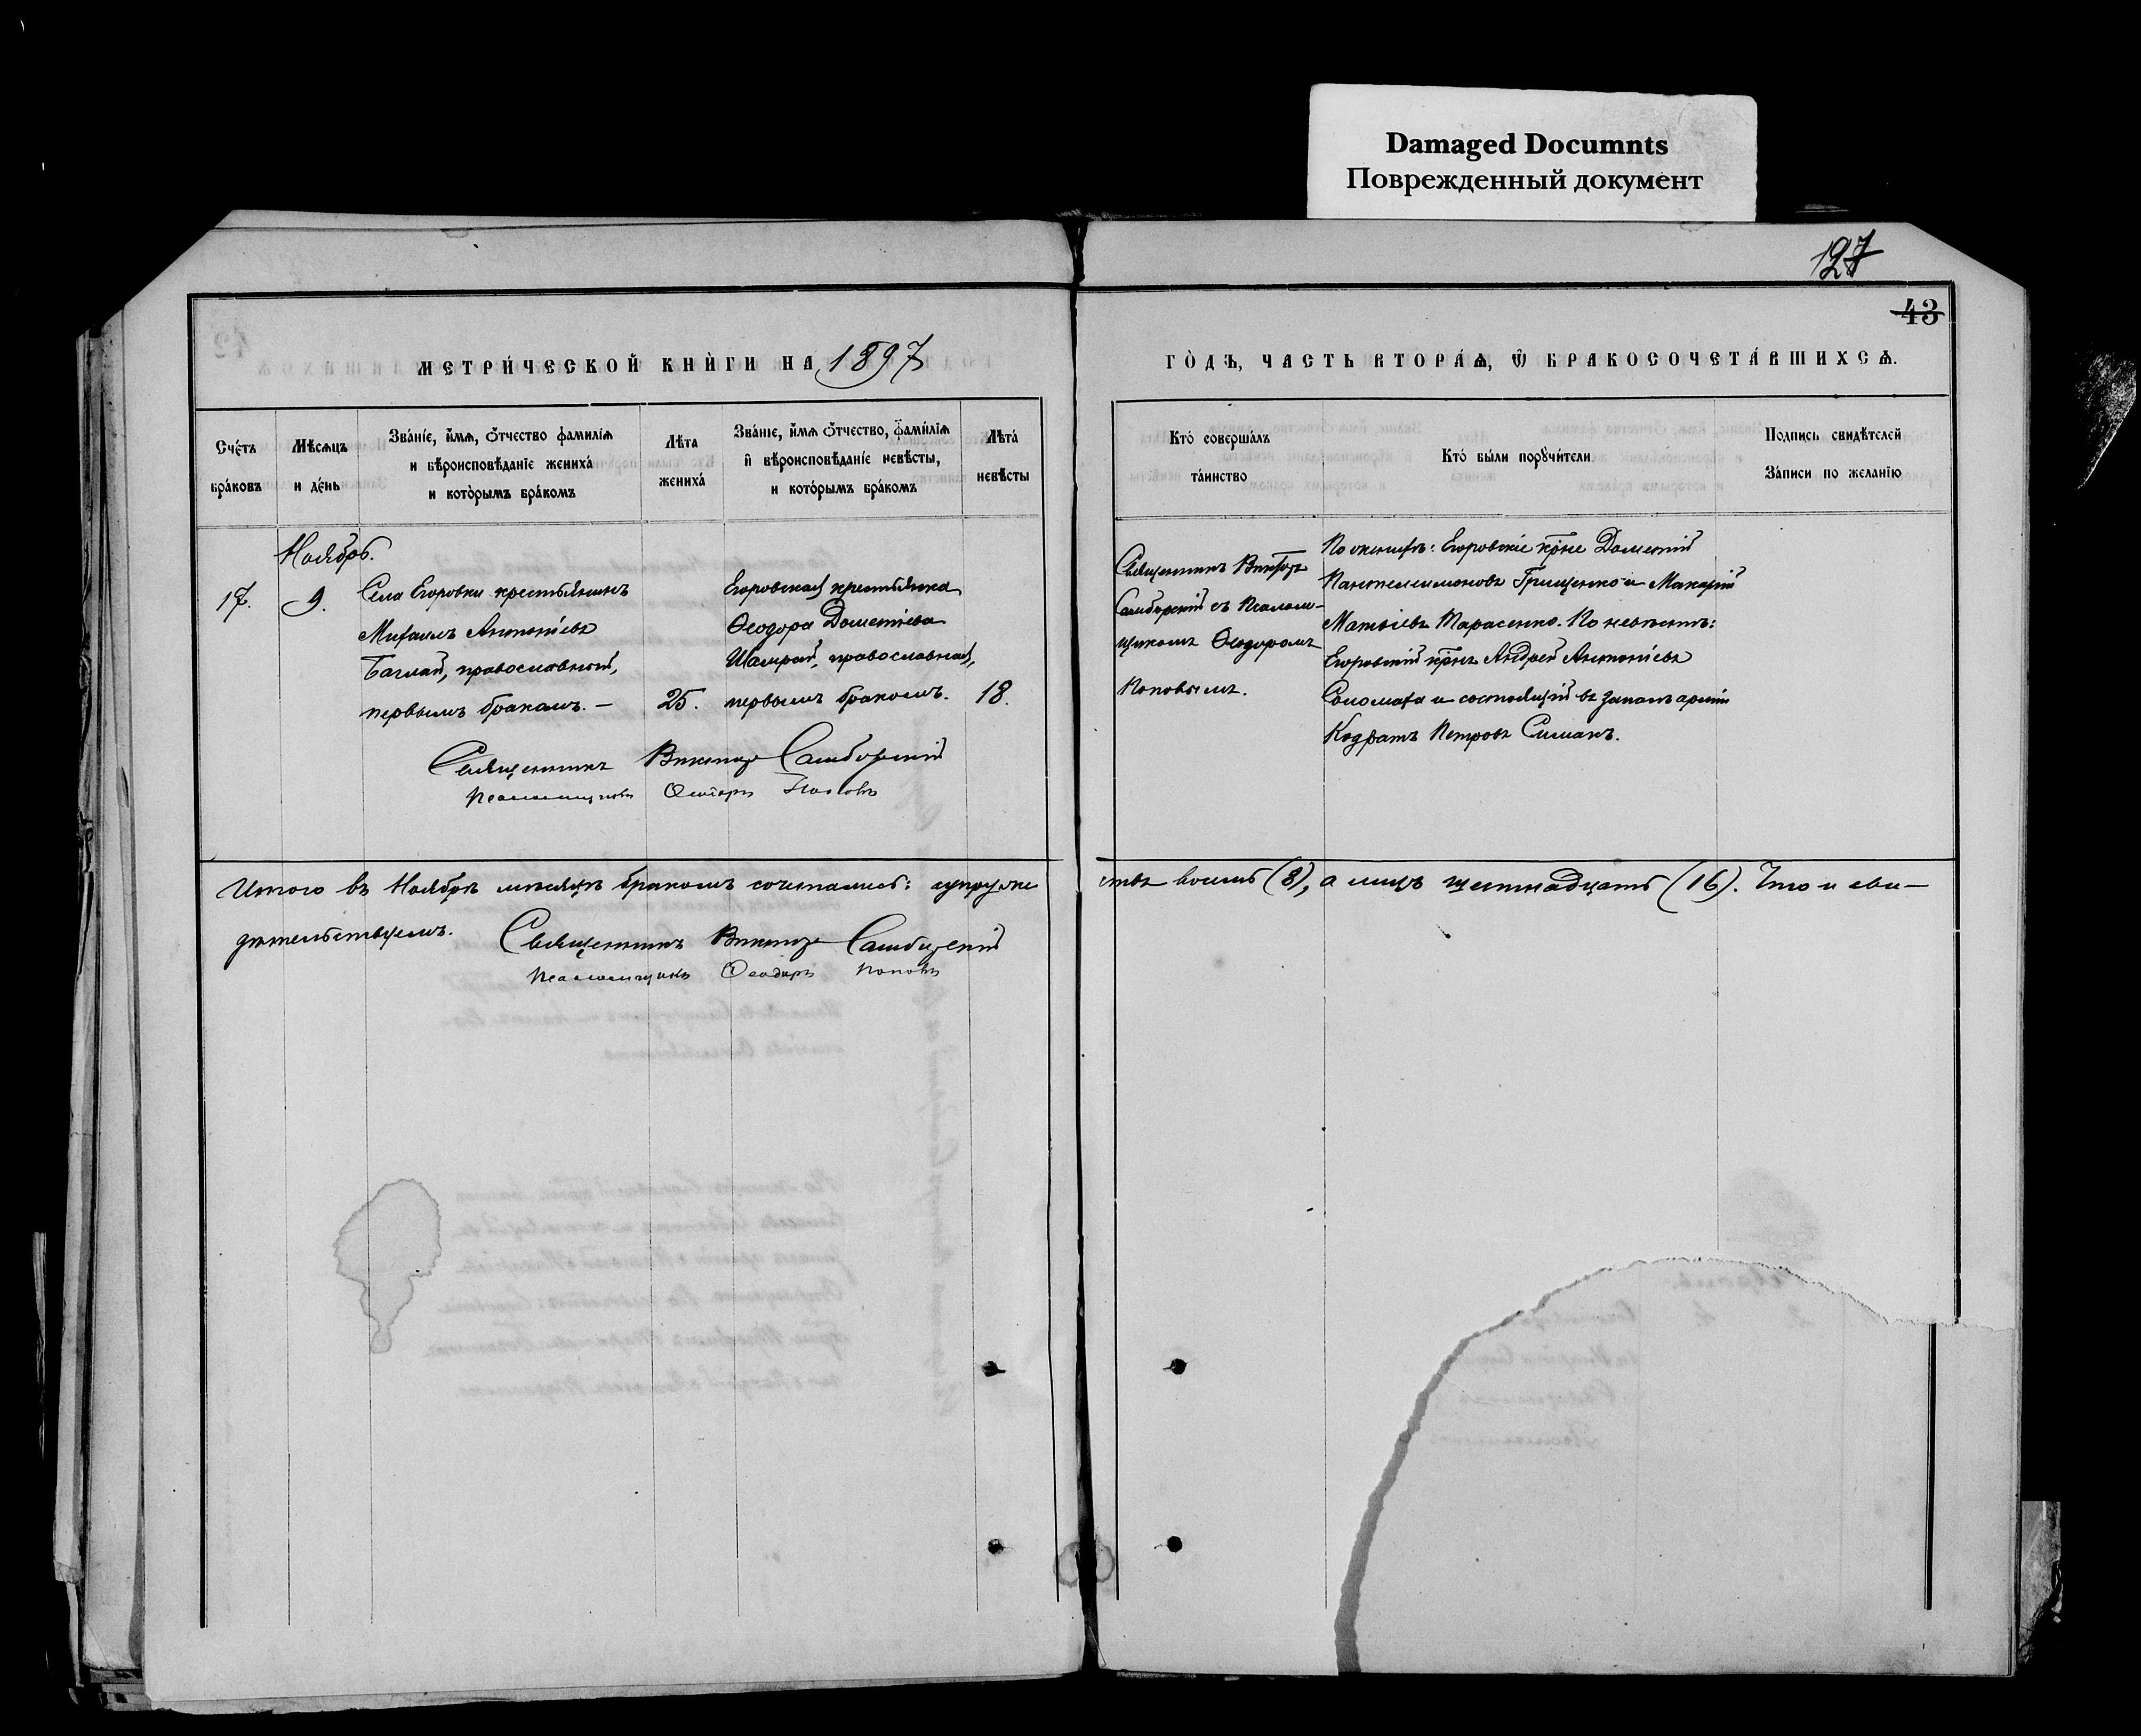 Damaged Documnts
Поврежденный документ
127
43
МЕТРИ́ЧЕСКОЙ КНИ́ГИ НА 1897
ГО́ДЪ, ЧАСТЬ ВТОРА́Ѧ, Ѿ БРАКОСОЧЕТА́ВШИХСѦ.
Сче́тъ
бра́ковъ
Мѣсѧцъ
и де́нь
Зва́нїе, и́мѧ, ѻ́тчество фамилїѧ
и вѣроисповѣданїе жениха́
и кото́рымъ бра́комъ
Лѣта
жениха́
Зва́нїе, и́мѧ ѻ́тчество, фами́лїѧ
и вѣроисповѣданїе невѣсты,
и кото́рымъ бра́комъ
Лѣта́
невѣсты
Кто́ соверша́лъ
та́инство
Кто́ бы́ли порꙋчи́тели
Подпись свидѣтелей
За́писи по желанїю
Ноябрь.
17.
9.
Села Егоровки крестьянинъ
Михаилъ Антоніевъ
Баглай, православный,
первымъ бракомъ. —
25.
Егоровская крестьянка
Ѳеодора Дометіева
Шамрай, православная,
первымъ бракомъ.
18.
Священникъ Викторъ
Самборскій съ Псалом-
щикомъ Ѳеодоромъ
Поповымъ.
По женихѣ: Егоровскіе кр̄не Дометій
Пантелеимоновъ Грищенко и Макарій
Матѳіевъ Тарасенко. По невѣстѣ:
Егоровскій кр̄нъ Андрей Антоніевъ
Соломаха и состоящій въ запасѣ арміи
Кодратъ Петровъ Симакъ.
Священникъ Викторъ Самборскій
Псаломщикъ Ѳеодоръ Поповъ
Итого въ Ноябрѣ мѣсяцѣ бракомъ сочетались: супруже
ствъ восемь (8), а лицъ шестнадцать (16). Что и сви-
дѣтельствуемъ.
Священникъ Викторъ Самборскій
Псаломщикъ Ѳеодоръ Поповъ